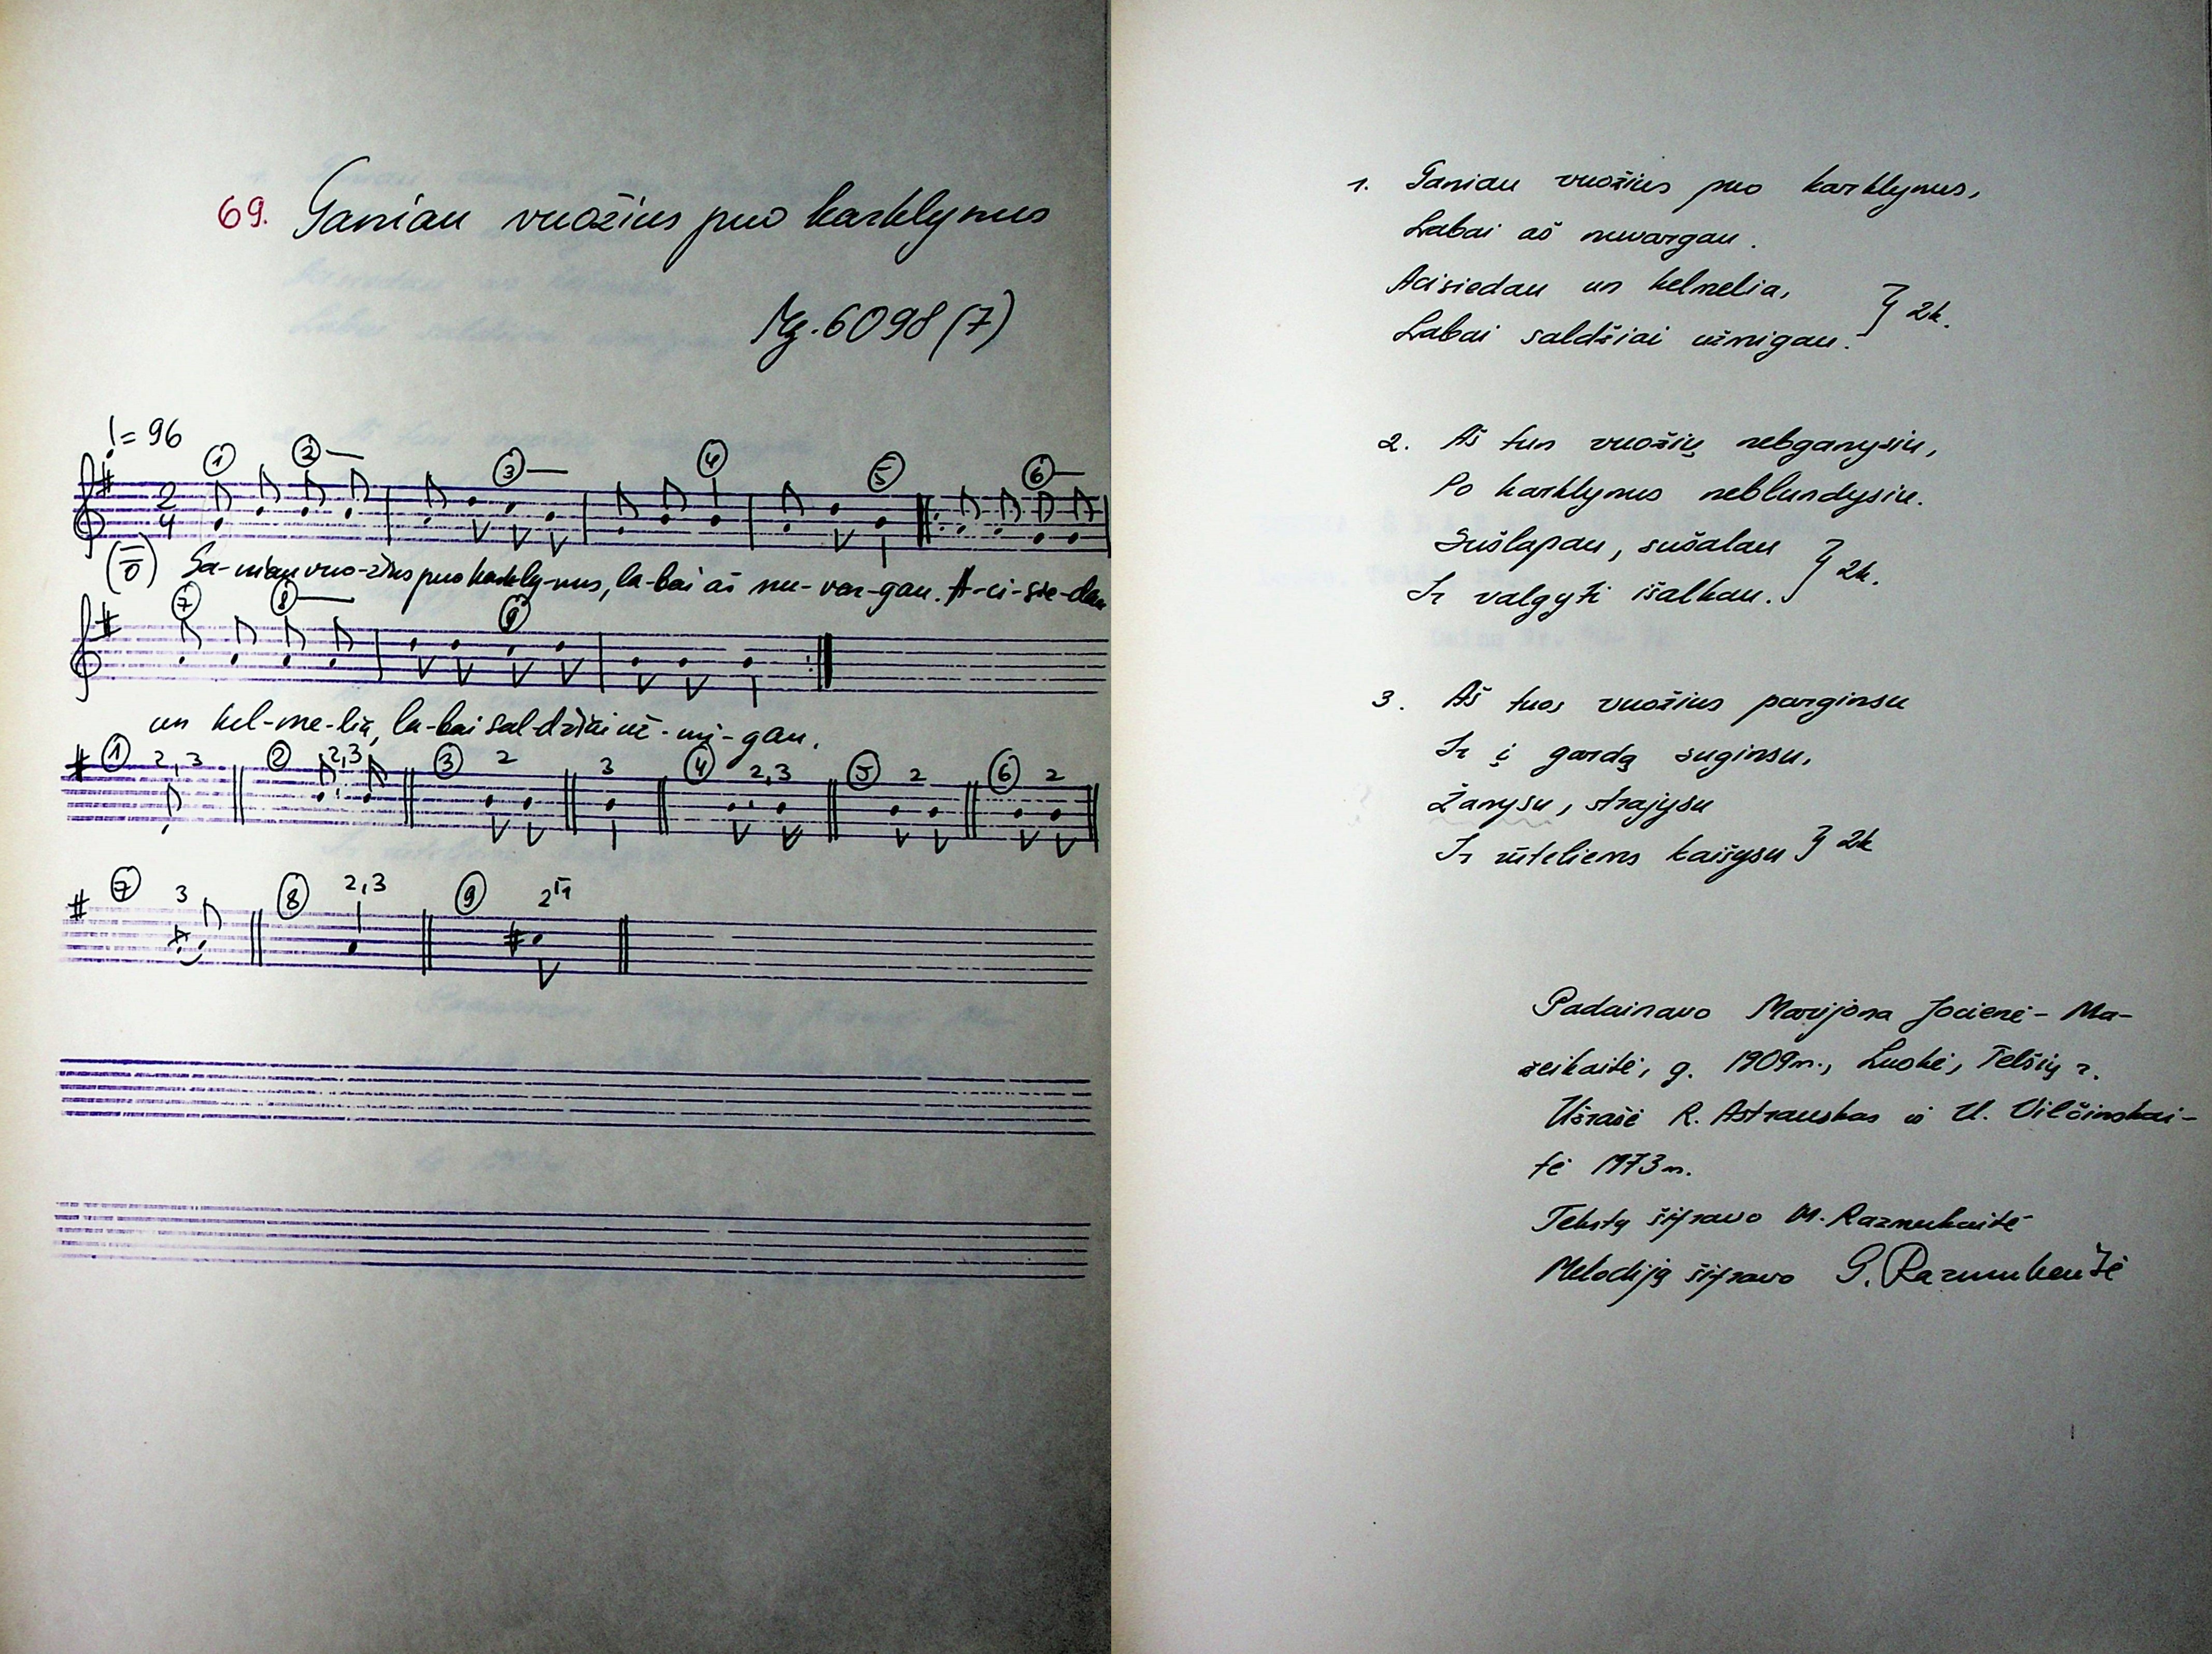 69. Ganiau vuožius puo karklynus
Mg. 6098 (7)
= 96
1 2 3 4 5 6
2
4
Ga-niau vuo-žius puo karkly-nus, la-bai aš nu-var-gau. A-ci-sie-dau
7 8 9
un kel-me-lia, la-bai sal-džiai už-mi-gau.
1 2,3 2 2,3 3 2 3 4 2,3 5 2 6 2
7 3 8 2,3 9
1. Ganiau vuožius puo karklynus,
Labai aš nuvargau.
Acisiedau un kelmelia,
Labai saldžiai užmigau. } 2k.
2. Aš tun vuožių nebganysiu,
Po karklynus neblundysiu.
Sušlapau, sušalau
Ir valgyti išalkau. } 2k.
3. Aš tuos vuožius parginsu
Ir į gardą suginsu,
Žanysu, strajysu
Ir rūteliems kaišysu } 2k
Padainavo Marijona Jocienė - Ma-
žeikaitė, g. 1909 m., Luokė, Telšių r.
Užrašė R. Astrauskas ir U. Vilčinskai-
tė 1973 m.
Tekstą šifravo M. Razmukaitė
Melodiją šifravo G. Razmukaitė